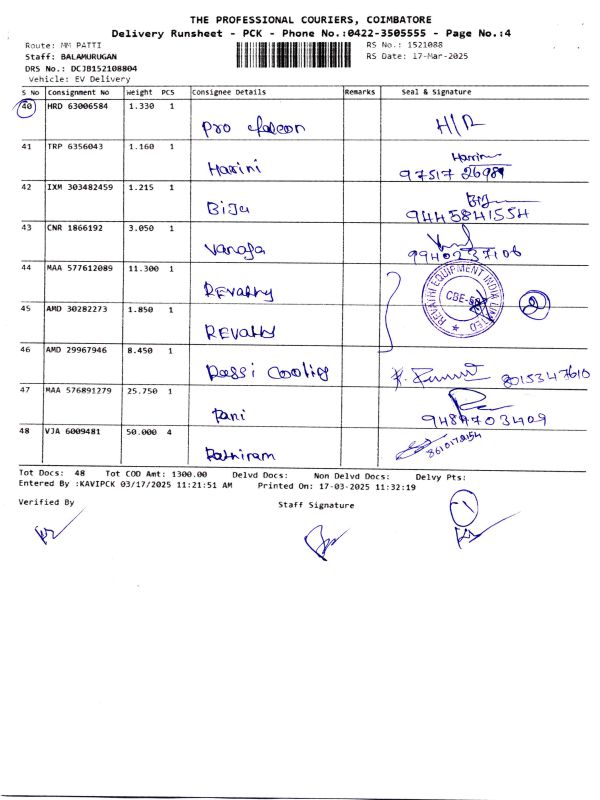 THE PROFESSIONAL COURIERS, COIMBATORE
Delivery Runsheet - PCK - Phone No.:0422-3505555 - Page No.:4
Route: MM PATTI RS No.: 1521088
Staff: BALAMURUGAN RS Date: 17-Mar-2025
DRS No.: DCJB152108804
Vehicle: EV Delivery
S No Consignment No Weight PCS Consignee Details Remarks Seal & Signature
40 HRD 63006584 1.330 1
Pro falcon H/R
41 TRP 6356043 1.160 1
Harini 97517 26989
42 IXM 303482459 1.215 1
BiJu 9445841554
43 CNR 1866192 3.050 1
Vanaja 9940237106
44 MAA 577612089 11.300 1
REvathy
REVATHI EQUIPMENT INDIA LIMITED
2
45 AMD 30282273 1.850 1
REvathy
46 AMD 29967946 8.450 1
Rossi Cooling 8015347610
47 MAA 576891279 25.750 1
Pani 9489703409
48 VJA 6009481 50.000 4
Rathiram 8610178154
Tot Docs: 48 Tot COD Amt: 1300.00 Delvd Docs: Non Delvd Docs: Delvy Pts:
Entered By :KAVIPCK 03/17/2025 11:21:51 AM Printed On: 17-03-2025 11:32:19
Verified By Staff Signature